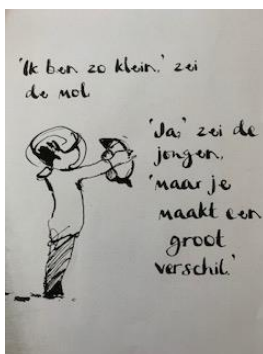 'Ik ben zo klein,' zei
de mol
'Ja,' zei de
jongen,
'maar je
maakt een
groot
verschil.'